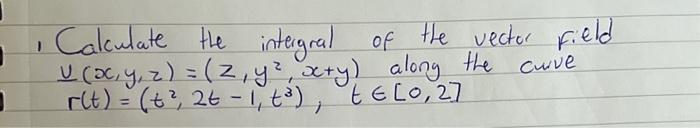 , Calculate the intergral of the vector field
v(x,y,z) = (z, y², x+y) along the curve
r(t) = (t², 2t - 1, t³), t ∈ [0, 2]